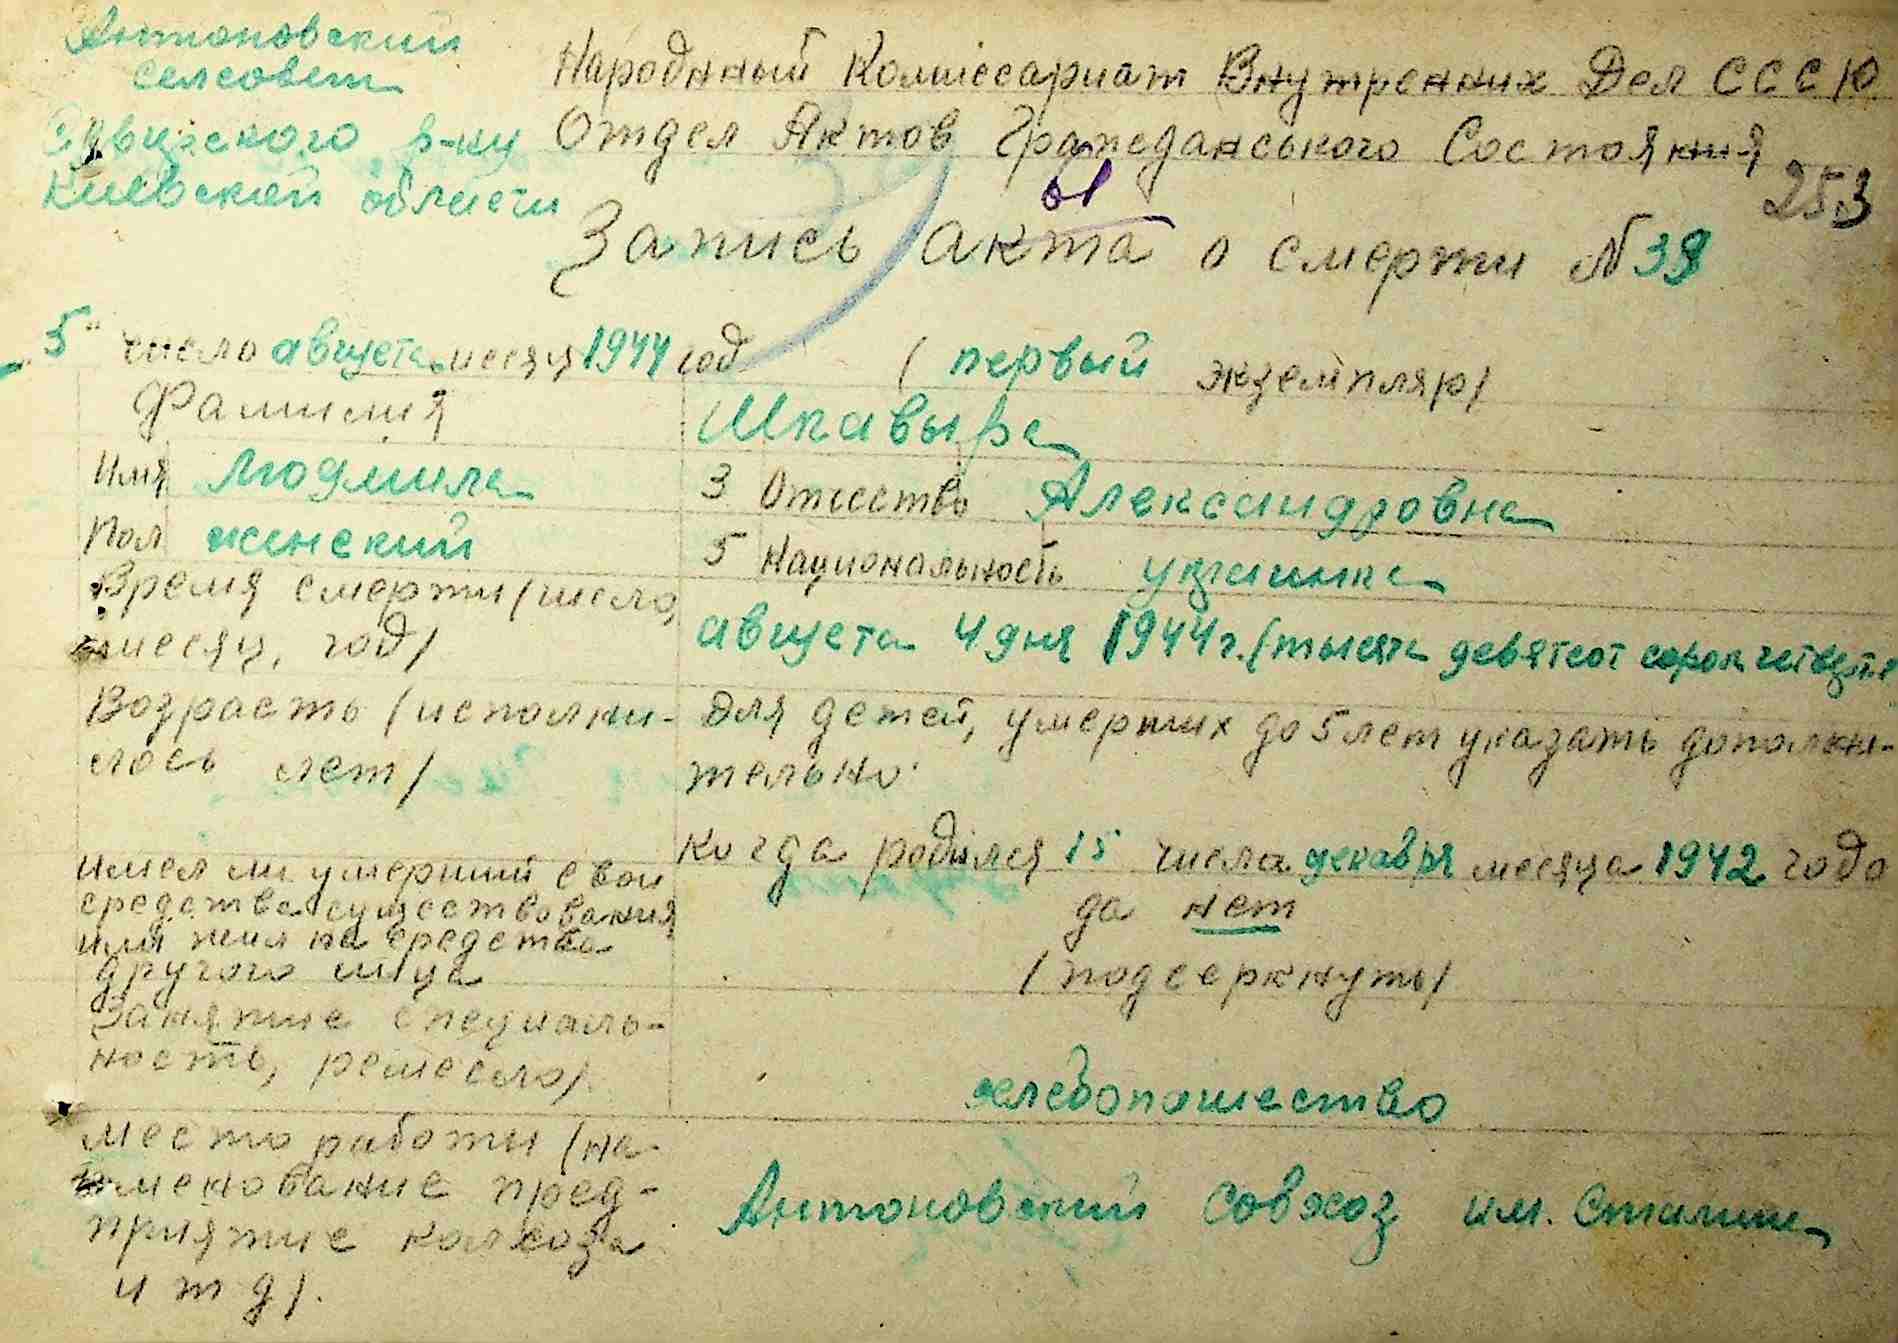 Антоновский
селсовет
р-ну
Киевской области
Народнный Комиссариат Внутренних Дел СССР
Отдел Актов Гражданського Состояния
253
Запись акта о смерти №38
ы
5" число августа месяц 1944 год ( первый экземпляр)
Фамилия Шкавыра
Имя Людмила 3 Отчество Александровна
Пол женский 5 Национальность украинка
Время смерти (число, месяц, год) августа 4 дня 1944 г. (тысяча девятсот сорок
Возрасть (исполни- для детей, умерших до 5 лет указать дополни-
лось лет) тельно.
Когда родился 15 числа декабря месяца 1942 года
имел ли умерший свои да нет
средства существования
или жил на средства (подчеркнуть)
другого лица
Занятие специаль-
ность, ремесло) хлебопашество
место работи (на-
именование пред- Антоновский совхоз им. Сталина
приятие колхоза
и т д).